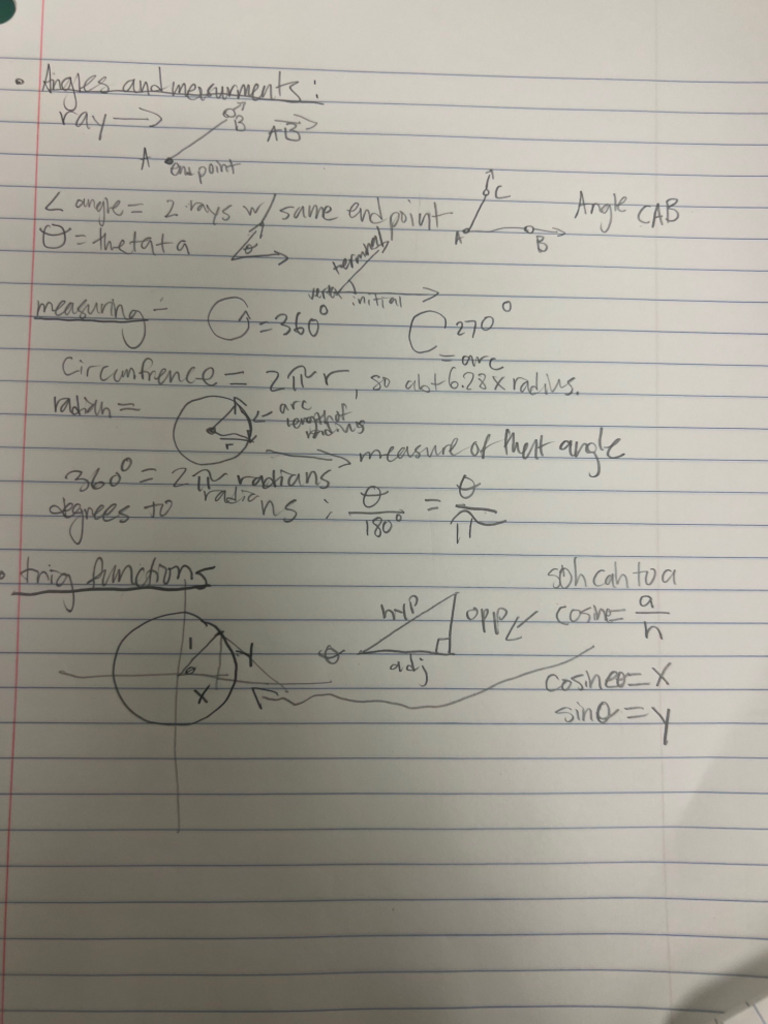 • Angles and mercurments:
ray → A B AB
endpoint
∠ angle = 2 rays w/ same endpoint A C B Angle CAB
θ = thetata θ terminal
vertex initial
measuring - = 360° 270°
= arc
Circumfrence = 2πr, so abt 6.28 x radius.
radian = r ← arc length of radius
→ measure of that angle
360° = 2π radians
degrees to radians : θ/180° = θ/π
• trig functions
sohcahtoa
hyp opp cosine = a/h
θ adj
1 θ x y
cosineθ = x
sinθ = y